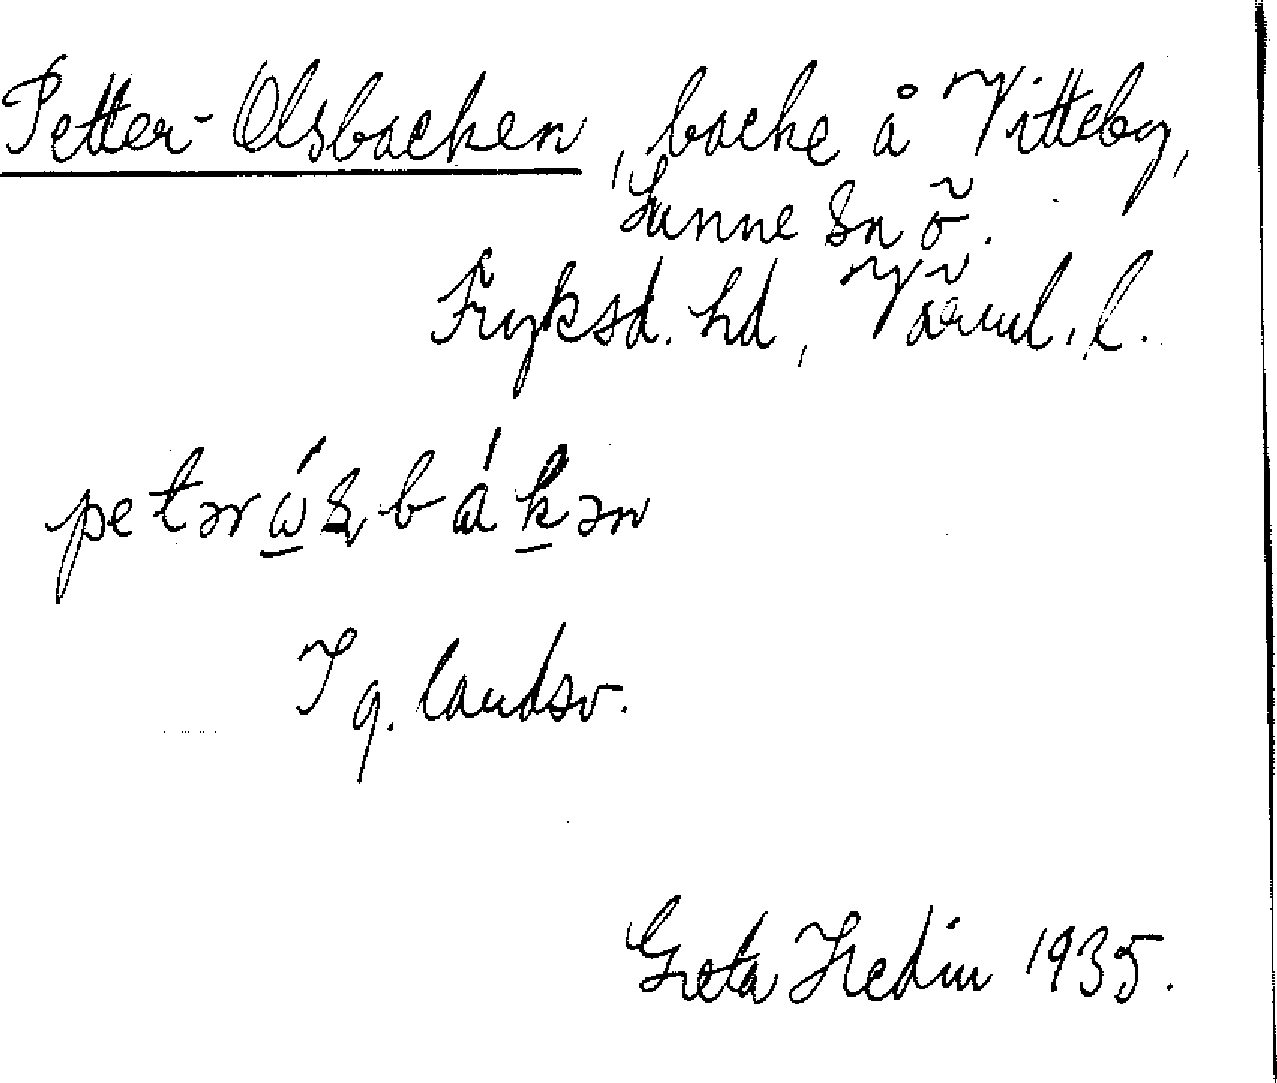 Petter-Olsbacken, backe å Vitteby,
Sunne sn ö.
Fryksd. hd, Värml. l.
I g. landsv.
Greta Hedin 1935.